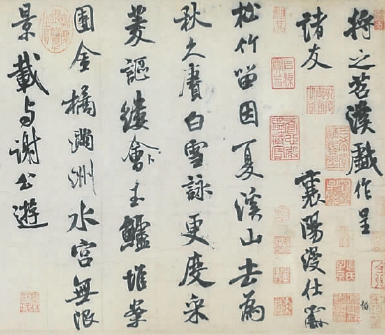 将之苕溪戲作呈
諸友　襄陽漫仕黻
松竹留因夏溪山去為
秋久賡白雪詠更度采
菱謳縷會玉鱸堆案
團金橘滿洲水宮無限
景載與謝公遊